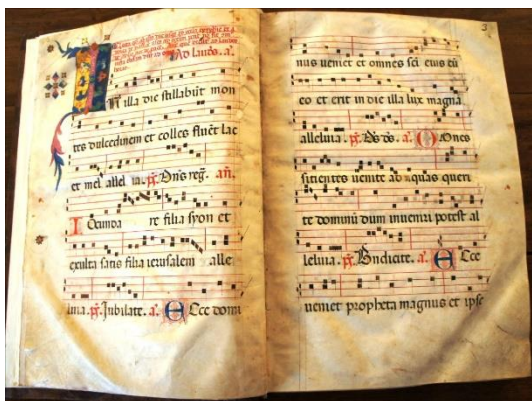 Ad laudes. a͞.
In illa die stillabūt mon
tes dulcedinem et colles fluēt lac
et mel alleluia. p͞s. Dn̄s reḡ. an̄.
Iocunda re filia syon et
exulta satis filia ierusalem alle
luia. p͞s. Jubilate. a͞. Ecce domi
3
nus veniet et omnes sc̄i eius cū
eo et erit in die illa lux magna
alleluia. p͞s. Ds̄ ds̄. a͞. Omnes
sitientes venite ad aquas queri
te dominū dum inveniri potest al
leluia. p͞s. Bn̄dicite. a͞. Ecce
veniet propheta magnus et ipse